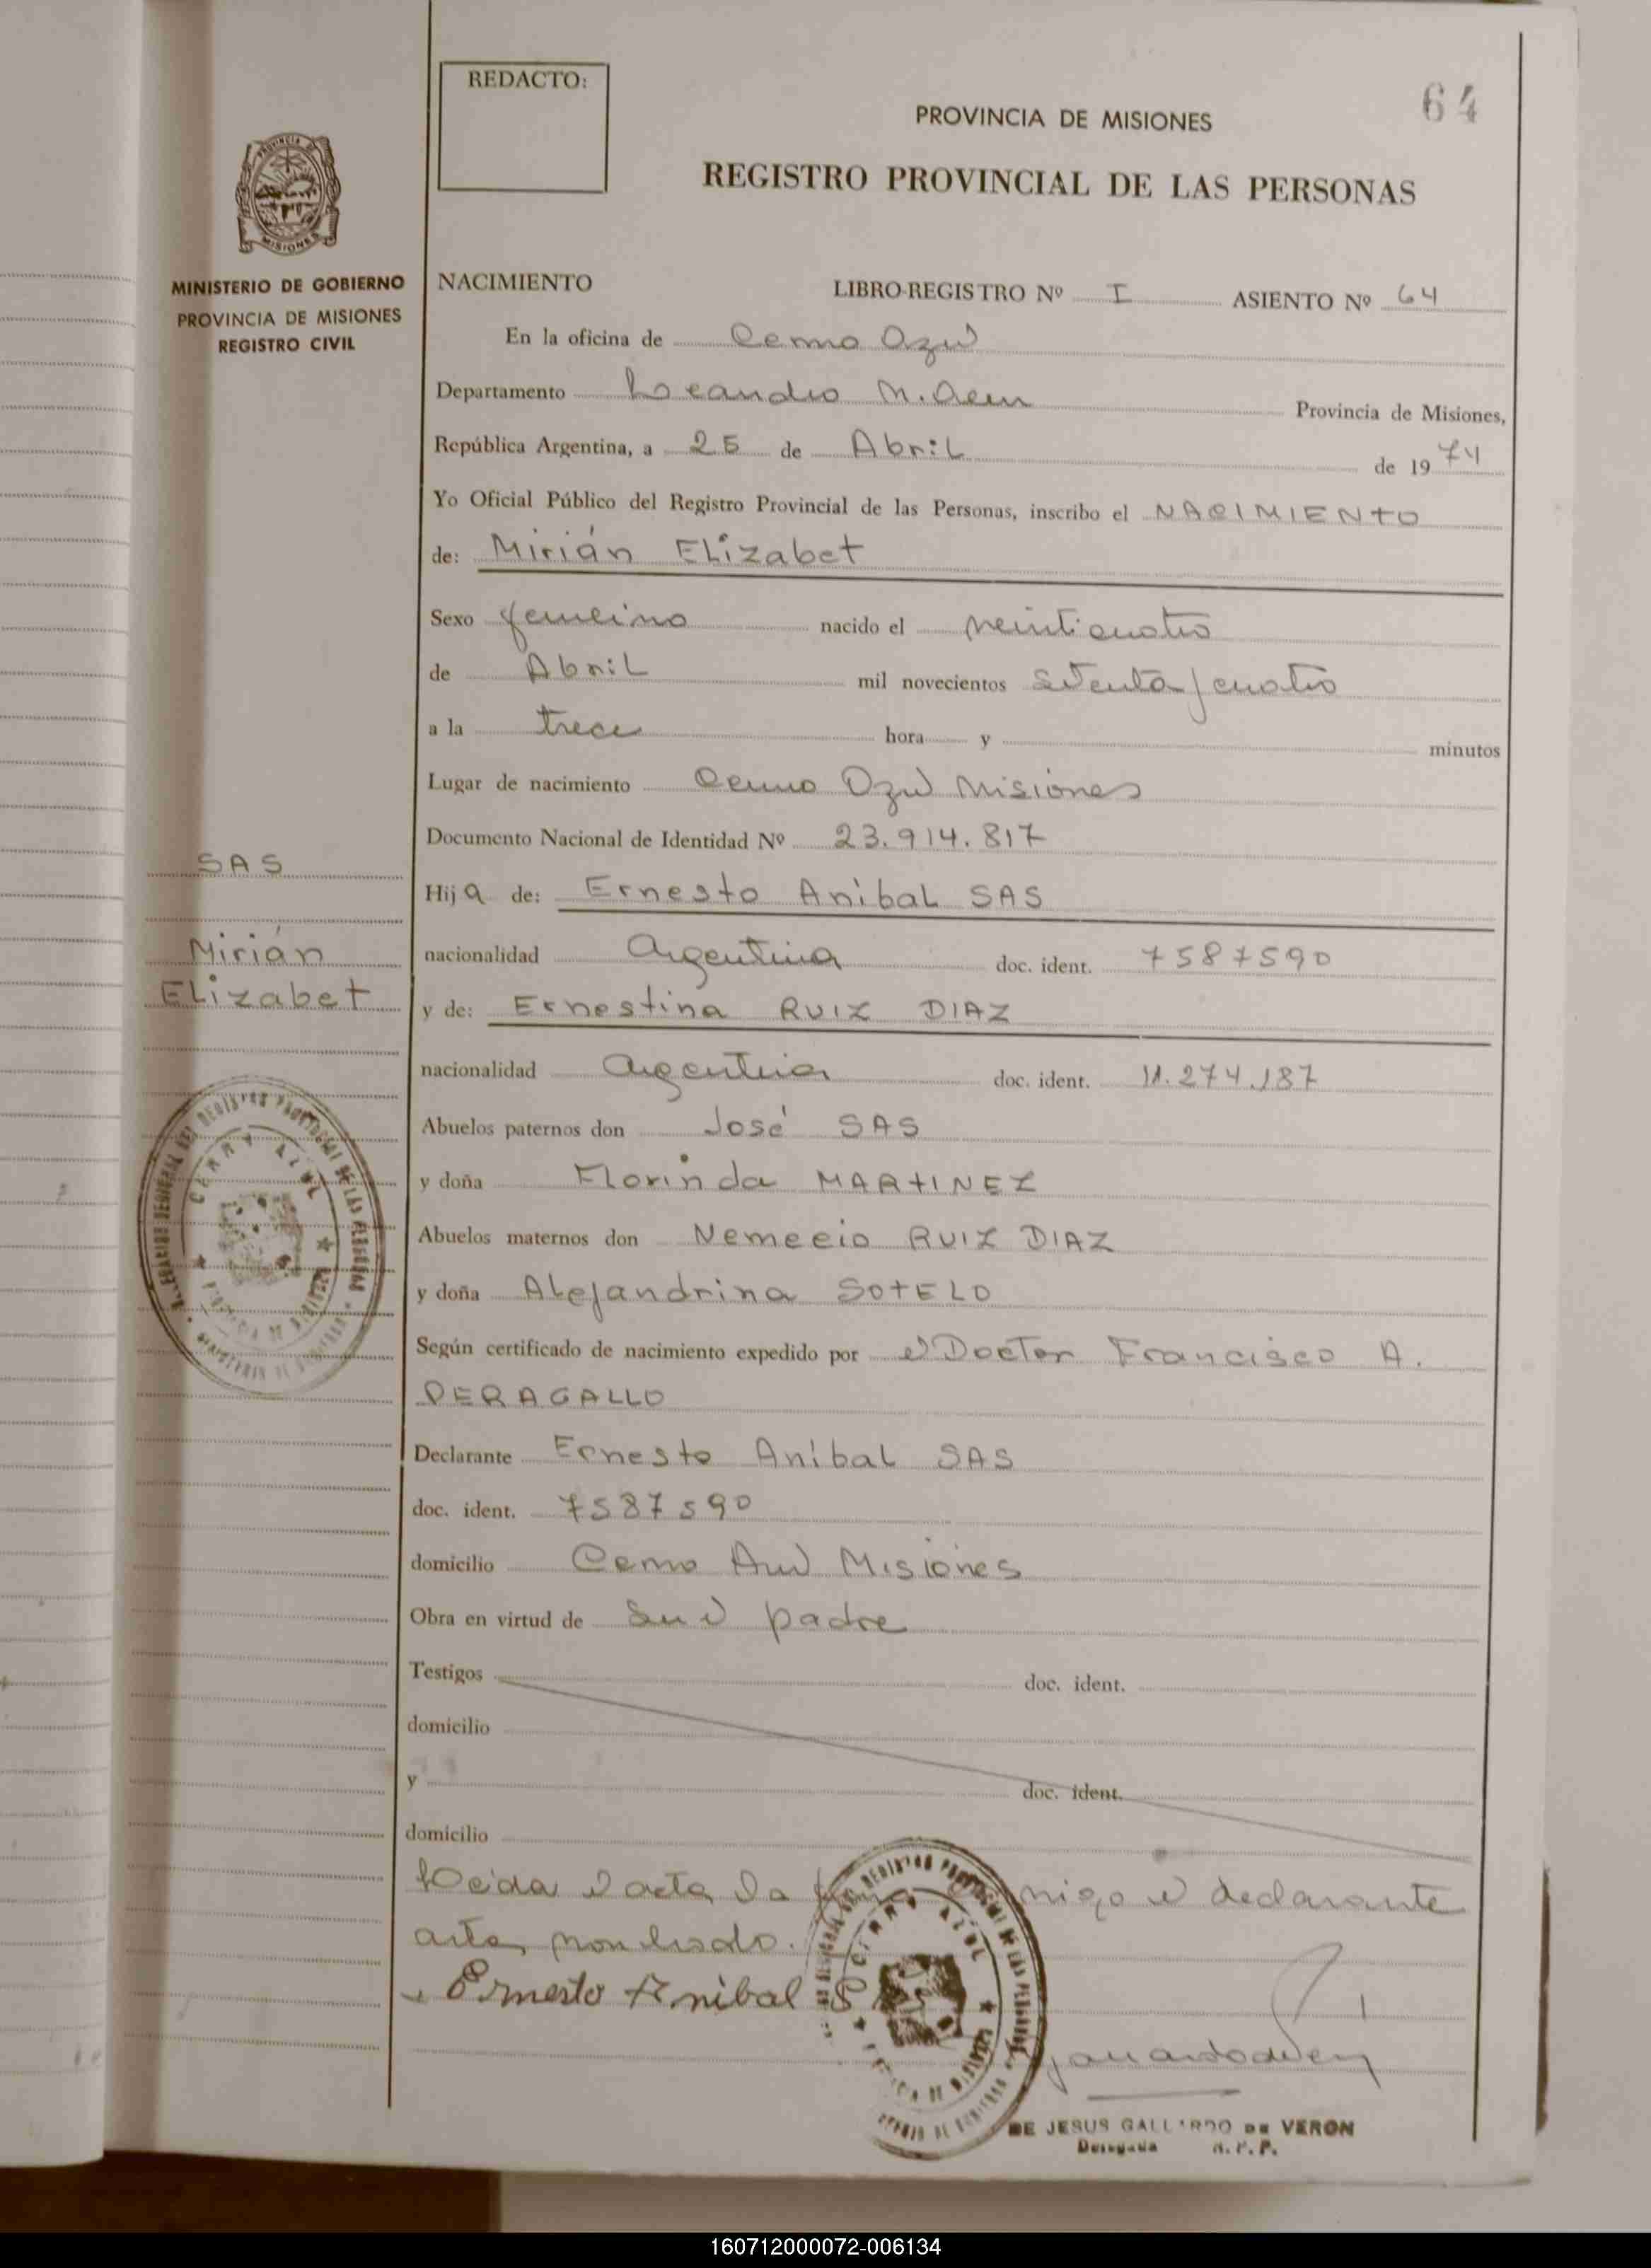 REDACTO:
64
PROVINCIA DE MISIONES
REGISTRO PROVINCIAL DE LAS PERSONAS
MINISTERIO DE GOBIERNO
PROVINCIA DE MISIONES
REGISTRO CIVIL
NACIMIENTO LIBRO-REGISTRO Nº I ASIENTO Nº 64
En la oficina de Cerro Azul
Departamento Leandro N. Alem Provincia de Misiones,
República Argentina, a 25 de Abril de 1974
Yo Oficial Público del Registro Provincial de las Personas, inscribo el NACIMIENTO
de: Mirián Elizabet
Sexo femenino nacido el veinticuatro
de Abril mil novecientos setenta y cuatro
a la trece hora y minutos
Lugar de nacimiento Cerro Azul Misiones
Documento Nacional de Identidad Nº 23.914.817
SAS
Hija de: Ernesto Anibal SAS
Mirián
nacionalidad Argentina doc. ident. 7587590
Elizabet
y de: Ernestina RUIZ DIAZ
nacionalidad Argentina doc. ident. 11.274.187
Abuelos paternos don José SAS
y doña Florinda MARTINEZ
Abuelos maternos don Nemecio RUIZ DIAZ
y doña Alejandrina SOTELO
Según certificado de nacimiento expedido por el Doctor Francisco A.
PERAGALLO
Declarante Ernesto Anibal SAS
doc. ident. 7587590
domicilio Cerro Azul Misiones
Obra en virtud de ser el padre
Testigos doc. ident.
domicilio
y doc. ident.
domicilio
Leída el acta, la migo el declarante
antes nombrado.
Ernesto Anibal
CERRO AZUL
DE JESUS GALLARDO DE VERON
Delegada R. P. P.
160712000072-006134